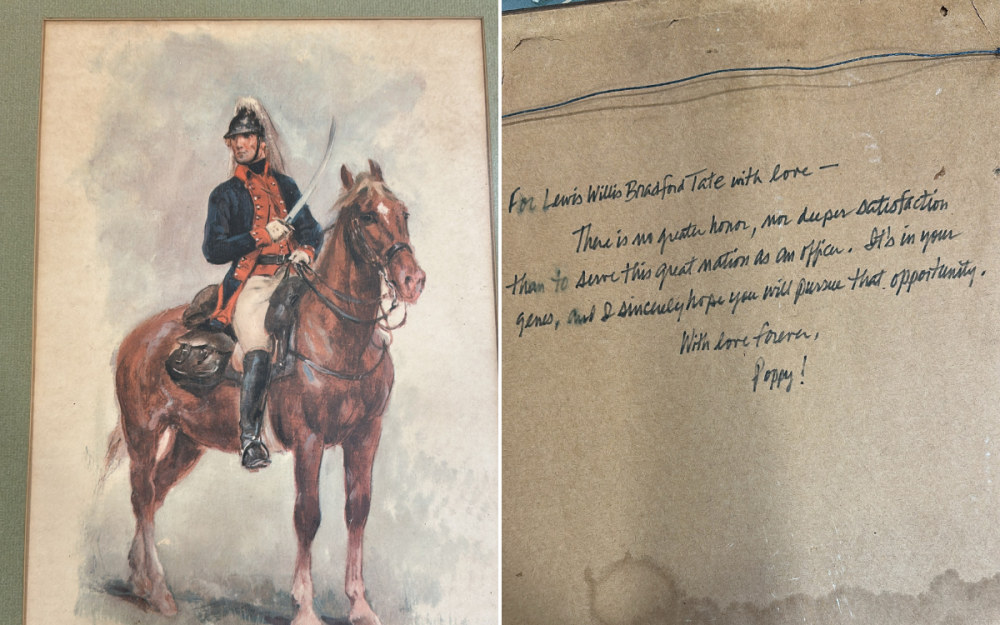 For Lewis Willis Bradford Tate with love —
There is no greater honor, nor deeper satisfaction
than to serve this great nation as an officer. It's in your
genes, and I sincerely hope you will pursue that opportunity.
With love forever,
Poppy!